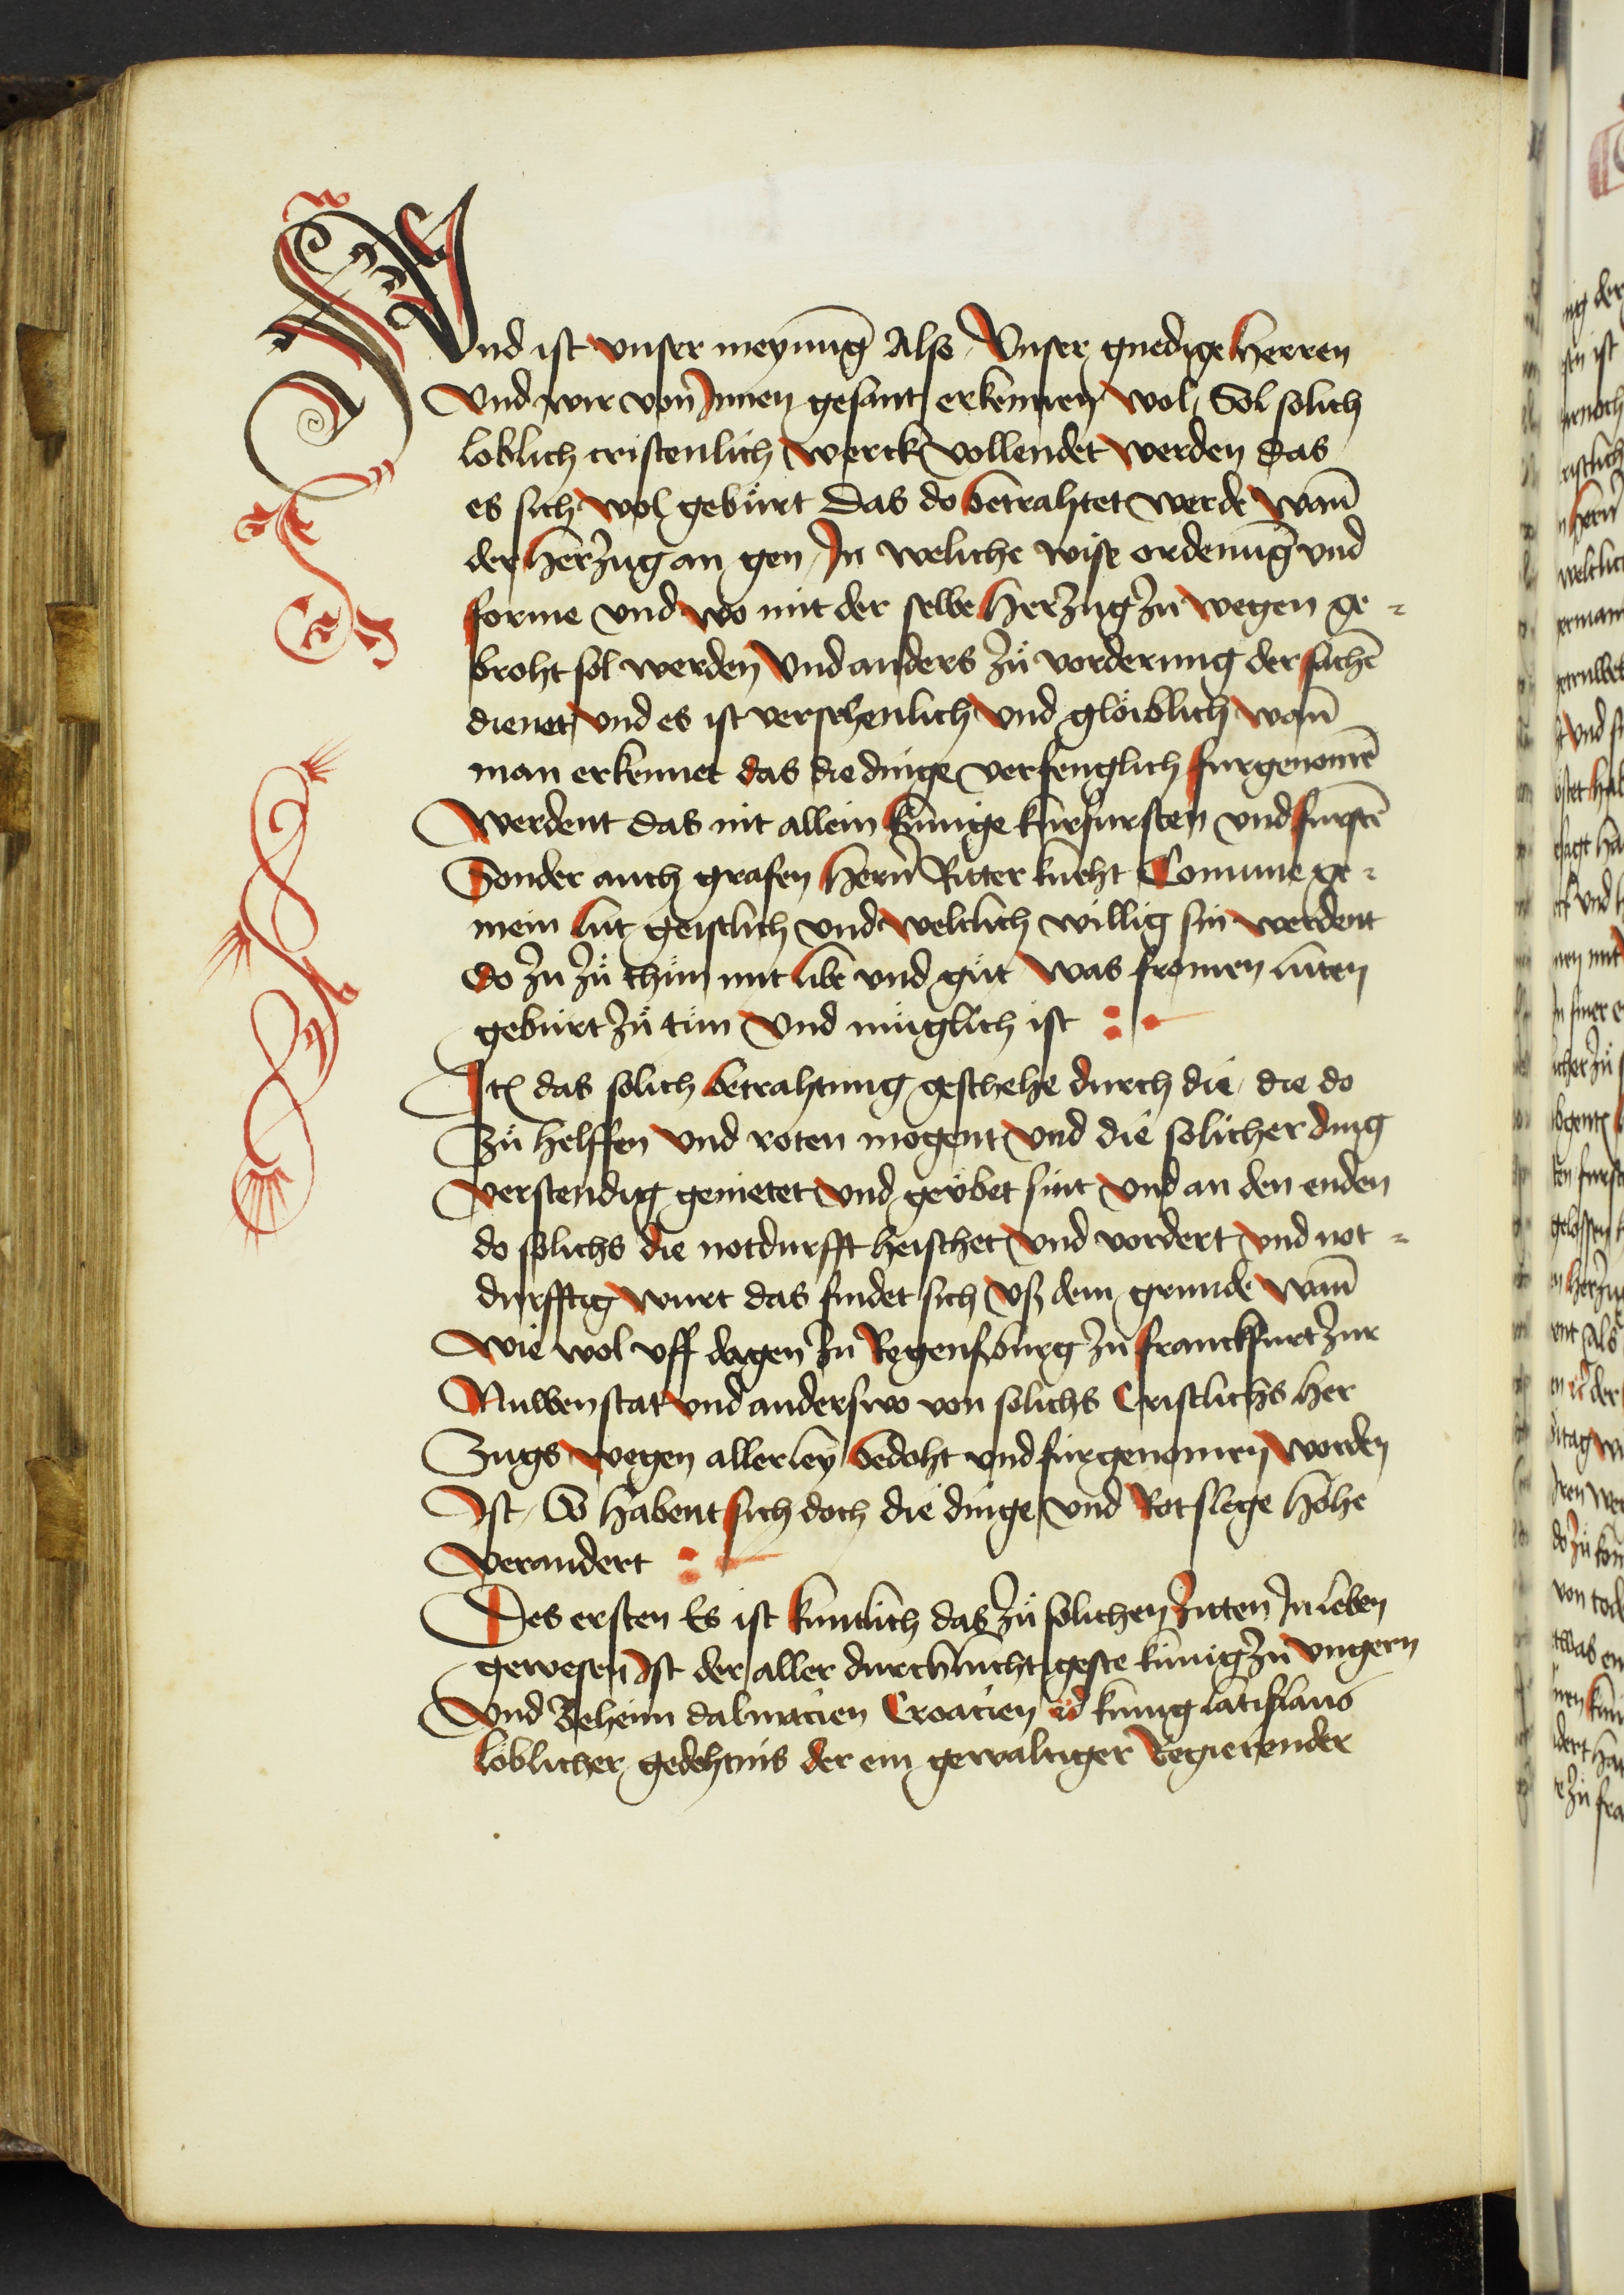 Vnd ist vnser meynunḡ Also Vnser gnedige Herren
Vnd wir von Jnnen gesant erkennen wol Sol solich
loblich cristenlich werck vollendet werden das
es sich wol gebürt das do betrahtet werde wan̄
der Herzug an gen Jn weliche wise ordenūg vnd
forme vnd wo mit der selbe Herzug zu wegen ge-
broht sol werden Vnd anders zů vorderung der sachē
dienet vnd es ist versehenlich vnd glöiblich wan̄
man erkennet das die dinge verfenglich furgenomē
werdent das nit allein künige kurfursten vnd furstē
Sonder auch grafen Hern̄ Ritter kneht Comune ge-
mein lüt geistlich vnd weltlich willig sin werdent
do zu zů thůn mit libe vnd gůt was fromen lüten
gebürt zů tün Vnd müglich ist
Jtē das solich betrahtung geschehe durch die die do
Zů helffen vnd roten mogent vnd die solicher ding
verstendig genietet vnd geübet sint vnd an den enden
do solichs die notdurfft heischet vnd vordert vnd not-
durfftig wurt das findet sich vß dem grunde wan̄
wie wol vff dagen zu Regenspurg zu franckfurt zur
Nuwenstat vnd anderswo von solichs Cristlichs Her
Zugs wegen allerley bedoht vnd fürgenomen worden
Jst So habent sich doch die dinge vnd Rotslege Höhe
verandert
Des ersten Es ist kuntlich das zů solichen zitten Jn leben
gewesen Jst der aller durchlüchtigeste künig zu vngern
vnd Beheim dalmacien Croacien &c künig latislaus
löblicher gedehtnis der ein gewaltiger Regierender